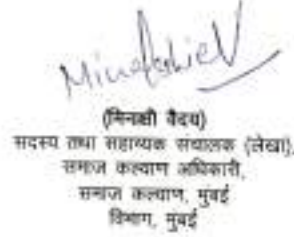 MinakshieV
(मिनाक्षी वैदय)
सदस्य तथा सहाय्यक संचालक (लेखा),
समाज कल्याण अधिकारी,
समाज कल्याण, मुंबई
विभाग, मुंबई